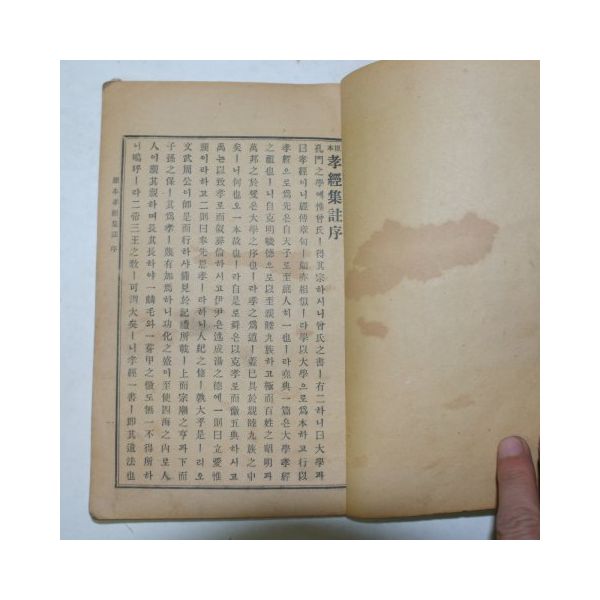 原本 孝經集註序
孔門之學에惟曾氏ㅣ得其宗하시니曾氏之書ㅣ有二하니曰大學과
曰孝經이니經傳章句ㅣ頗亦相似ㅣ라學以大學으로爲本하고行以
孝經으로爲先은自天子로至庶人히一也ㅣ라堯典一篇은大學孝經
之祖也ㅣ니自克明峻德으로以至親睦九族하고極而百姓之昭明과
萬邦之於變은大學之序也ㅣ라孝之爲道ㅣ蓋已具於親睦九族之中
矣ㅣ니何也오一本故也ㅣ라自是로舜은以克孝로而徽五典하시고
禹는以致孝로而敍彝倫하시고伊尹은述成湯之德에一則曰立愛惟
親이라하고二則曰奉先思孝ㅣ라하니人紀之修ㅣ孰大乎是ㅣ리오
文武周公이師是而行하샤備見於記禮所載ㅣ上而宗廟之享과下而
子孫之保ㅣ其爲孝ㅣ蔑有加焉하니功化之盛이至使四海之內로人
人이親其親하며長其長하야一麟毛와一芽甲之微도無一不得所하
니嗚呼ㅣ라二帝三王之敎ㅣ可謂大矣ㅣ니孝經一書ㅣ卽其遺法也
原本孝經集註 序